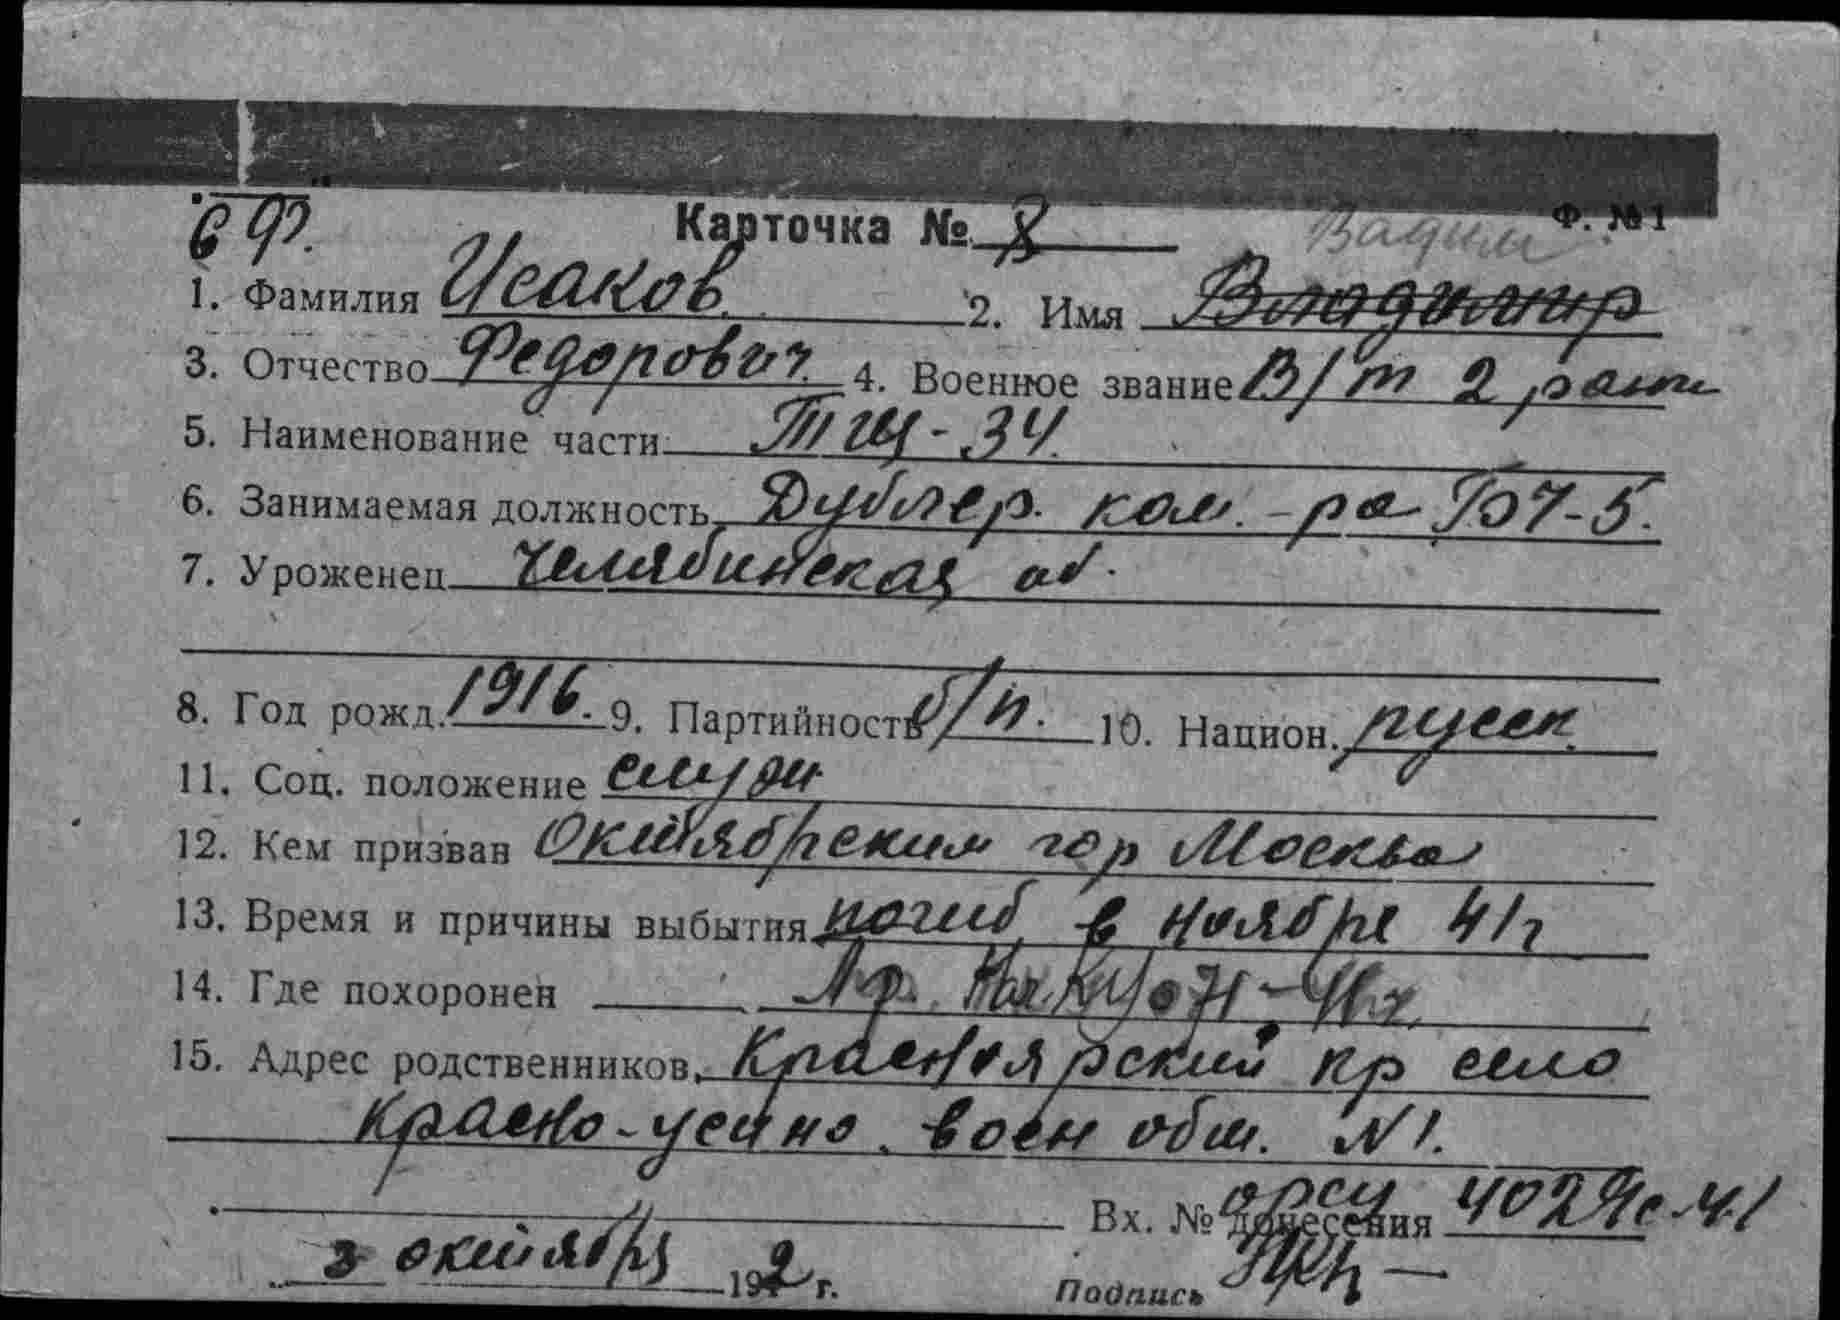 СФ.
Карточка № 8
Ф. №1
Вадим
1. Фамилия Исаков. 2. Имя Владимир
3. Отчество Федорович. 4. Военное звание В/т 2 ранга
5. Наименование части ТЩ-34.
6. Занимаемая должность Дублер. ком.-ра БЧ-5.
7. Уроженец Челябинская об.
8. Год рожд. 1916. 9. Партийность б/п. 10. Национ. русск.
11. Соц. положение служ
12. Кем призван Октябрьским гор Москва
13. Время и причины выбытия погиб в ноябре 41г
14. Где похоронен
15. Адрес родственников. Красноярский кр село
Красно-усино. воен общ. N1.
Вх. № донесения орсу 4029с-41
3 октября 1942 г. Подпись